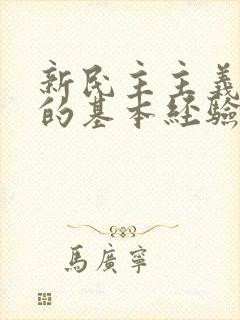 新民主主義
的基本經驗
馬廣寧